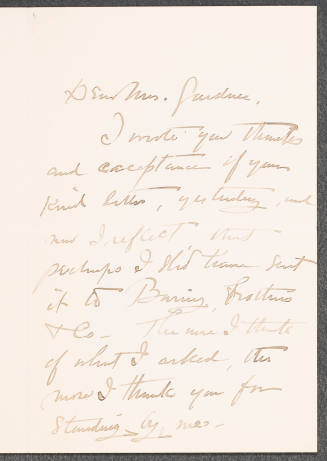 Dear Mrs. Gardner,
I wrote you thanks
and acceptance of your
kind letter, yesterday, and
now I reflect that
perhaps I sh'd have sent
it to Baring, Brothers
& Co— The more I think
of what I asked, the
more I thank you for
standing by me—